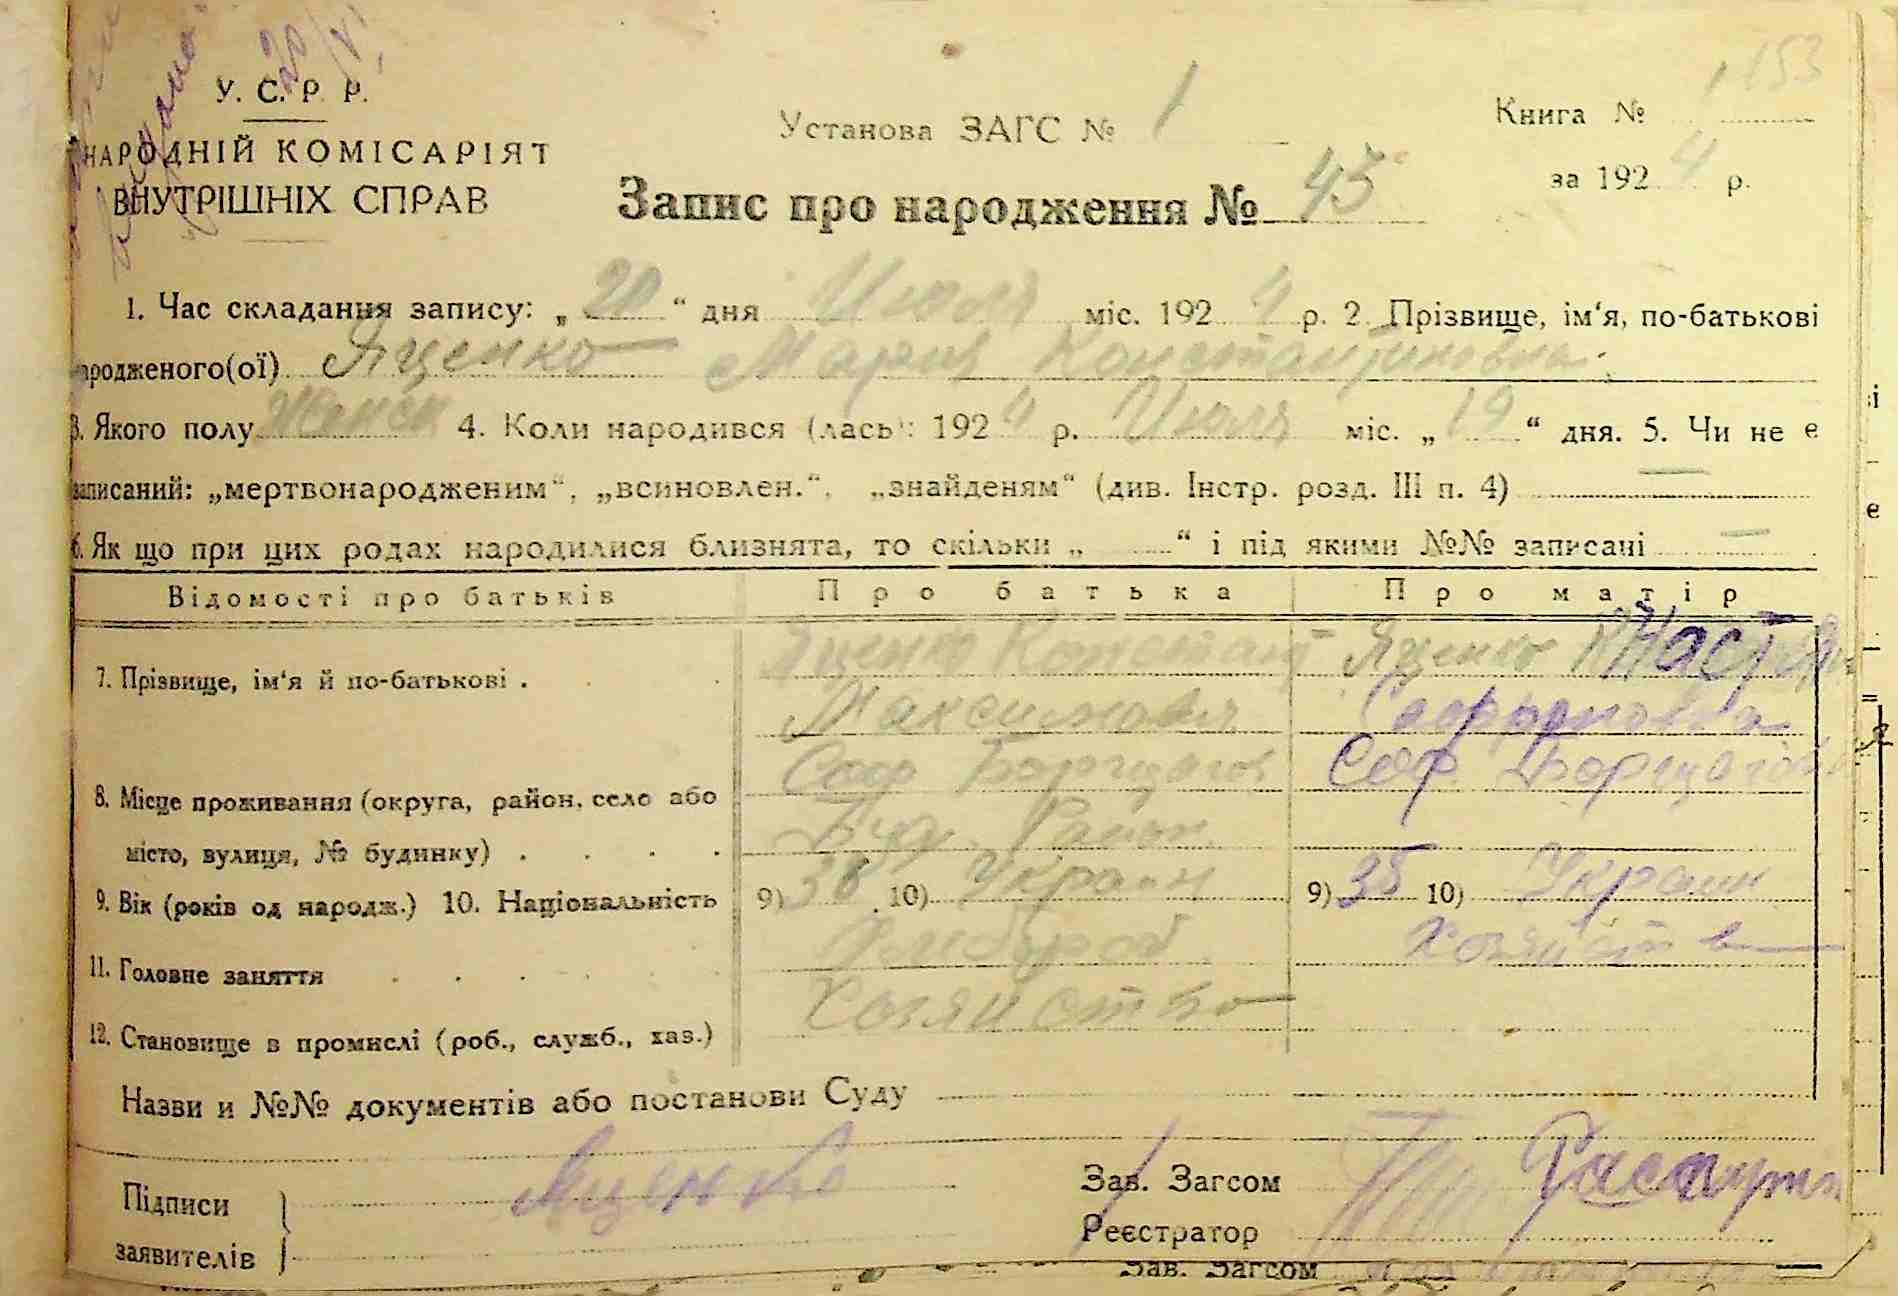 У. С. Р. Р.
НАРОДНІЙ КОМІСАРІЯТ
ВНУТРІШНІХ СПРАВ
Установа ЗАГС № 1
Запис про народження № 45
Книга № 1 153
за 1924 р.
1. Час складання запису: „20“ дня Июля міс. 1924 р. 2. Прізвище, ім‘я, по-батькові
народженого(ої) Яценко Мария Константиновна
3. Якого полу Женск 4. Коли народився (лась): 1924 р. Июля міс. „19“ дня. 5. Чи не е
записаний: „мертвонародженим“, „всиновлен.“, „знайденям“ (див. Інстр. розд. III п. 4) —
6. Як що при цих родах народилися близнята, то скільки „ “ і під якими №№ записані —
Відомості про батьків Про батька Про матір
7. Прізвище, ім‘я й по-батькові . Яценко Констант Яценко Наст
Максимович Софроновна
8. Місце проживання (округа, район, село або Соф Борщагов Соф Борщагов
місто, вулиця, № будинку) . . . . Буд. Район
9. Вік (років од народж.) 10. Національність 9) 36 10) Украин 9) 35 10) Украин
11. Головне заняття . . . . Хлибороб Хозяйство
12. Становище в промислі (роб., служб., хаз.) Хозяйство
Назви и №№ документів або постанови Суду
Підписи
заявителів
Яценко
Зав. Загсом
Реєстратор
Зав. Загсом